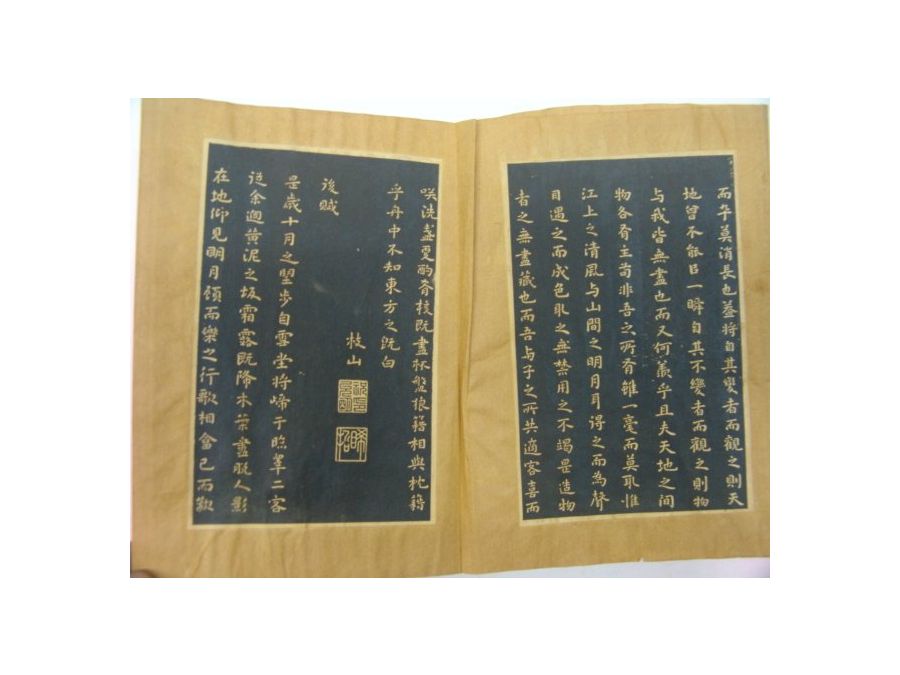 而卒莫消長也葢將自其變者而觀之則天
地曾不能㠯一瞬自其不變者而觀之則物
与我皆無盡也而又何羨乎且夫天地之間
物各有主苟非吾之所有雖一毫而莫取惟
江上之清風与山間之明月耳得之而為聲
目遇之而成色取之無禁用之不竭是造物
者之無盡藏也而吾与子之所共適客喜而
咲洗盞更酌肴核既盡杯盤狼籍相與枕籍
乎舟中不知東方之既白
枝山
後賦
是歲十月之望步自雪堂將歸于臨皋二客
從余過黄泥之坂霜露既降木葉盡脫人影
在地仰見明月顧而樂之行歌相畣已而歎